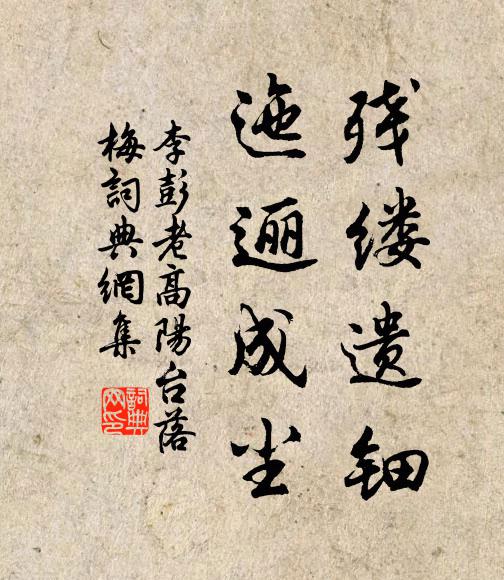 残缕遗钿
迤逦成尘
李彭老高陽台落
梅詞典網集
詞典
网印